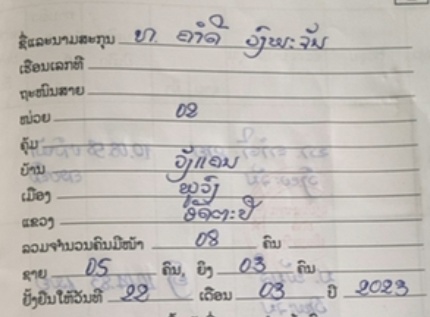 ຊື່ແລະນາມສະກຸນ ທ. ຄຳດີ ວົງພະຈັນ
ເຮືອນເລກທີ
ຖະໜົນສາຍ
ໜ່ວຍ 02
ຄຸ້ມ
ບ້ານ ວັງແດນ
ເມືອງ ພູວົງ
ແຂວງ ອັດຕະປື
ລວມຈຳນວນຄົນມີໜ້າ 08 ຄົນ
ຊາຍ 05 ຄົນ, ຍິງ 03 ຄົນ
ຢັ້ງຢືນໃຫ້ວັນທີ 22 ເດືອນ 03 ປີ 2023